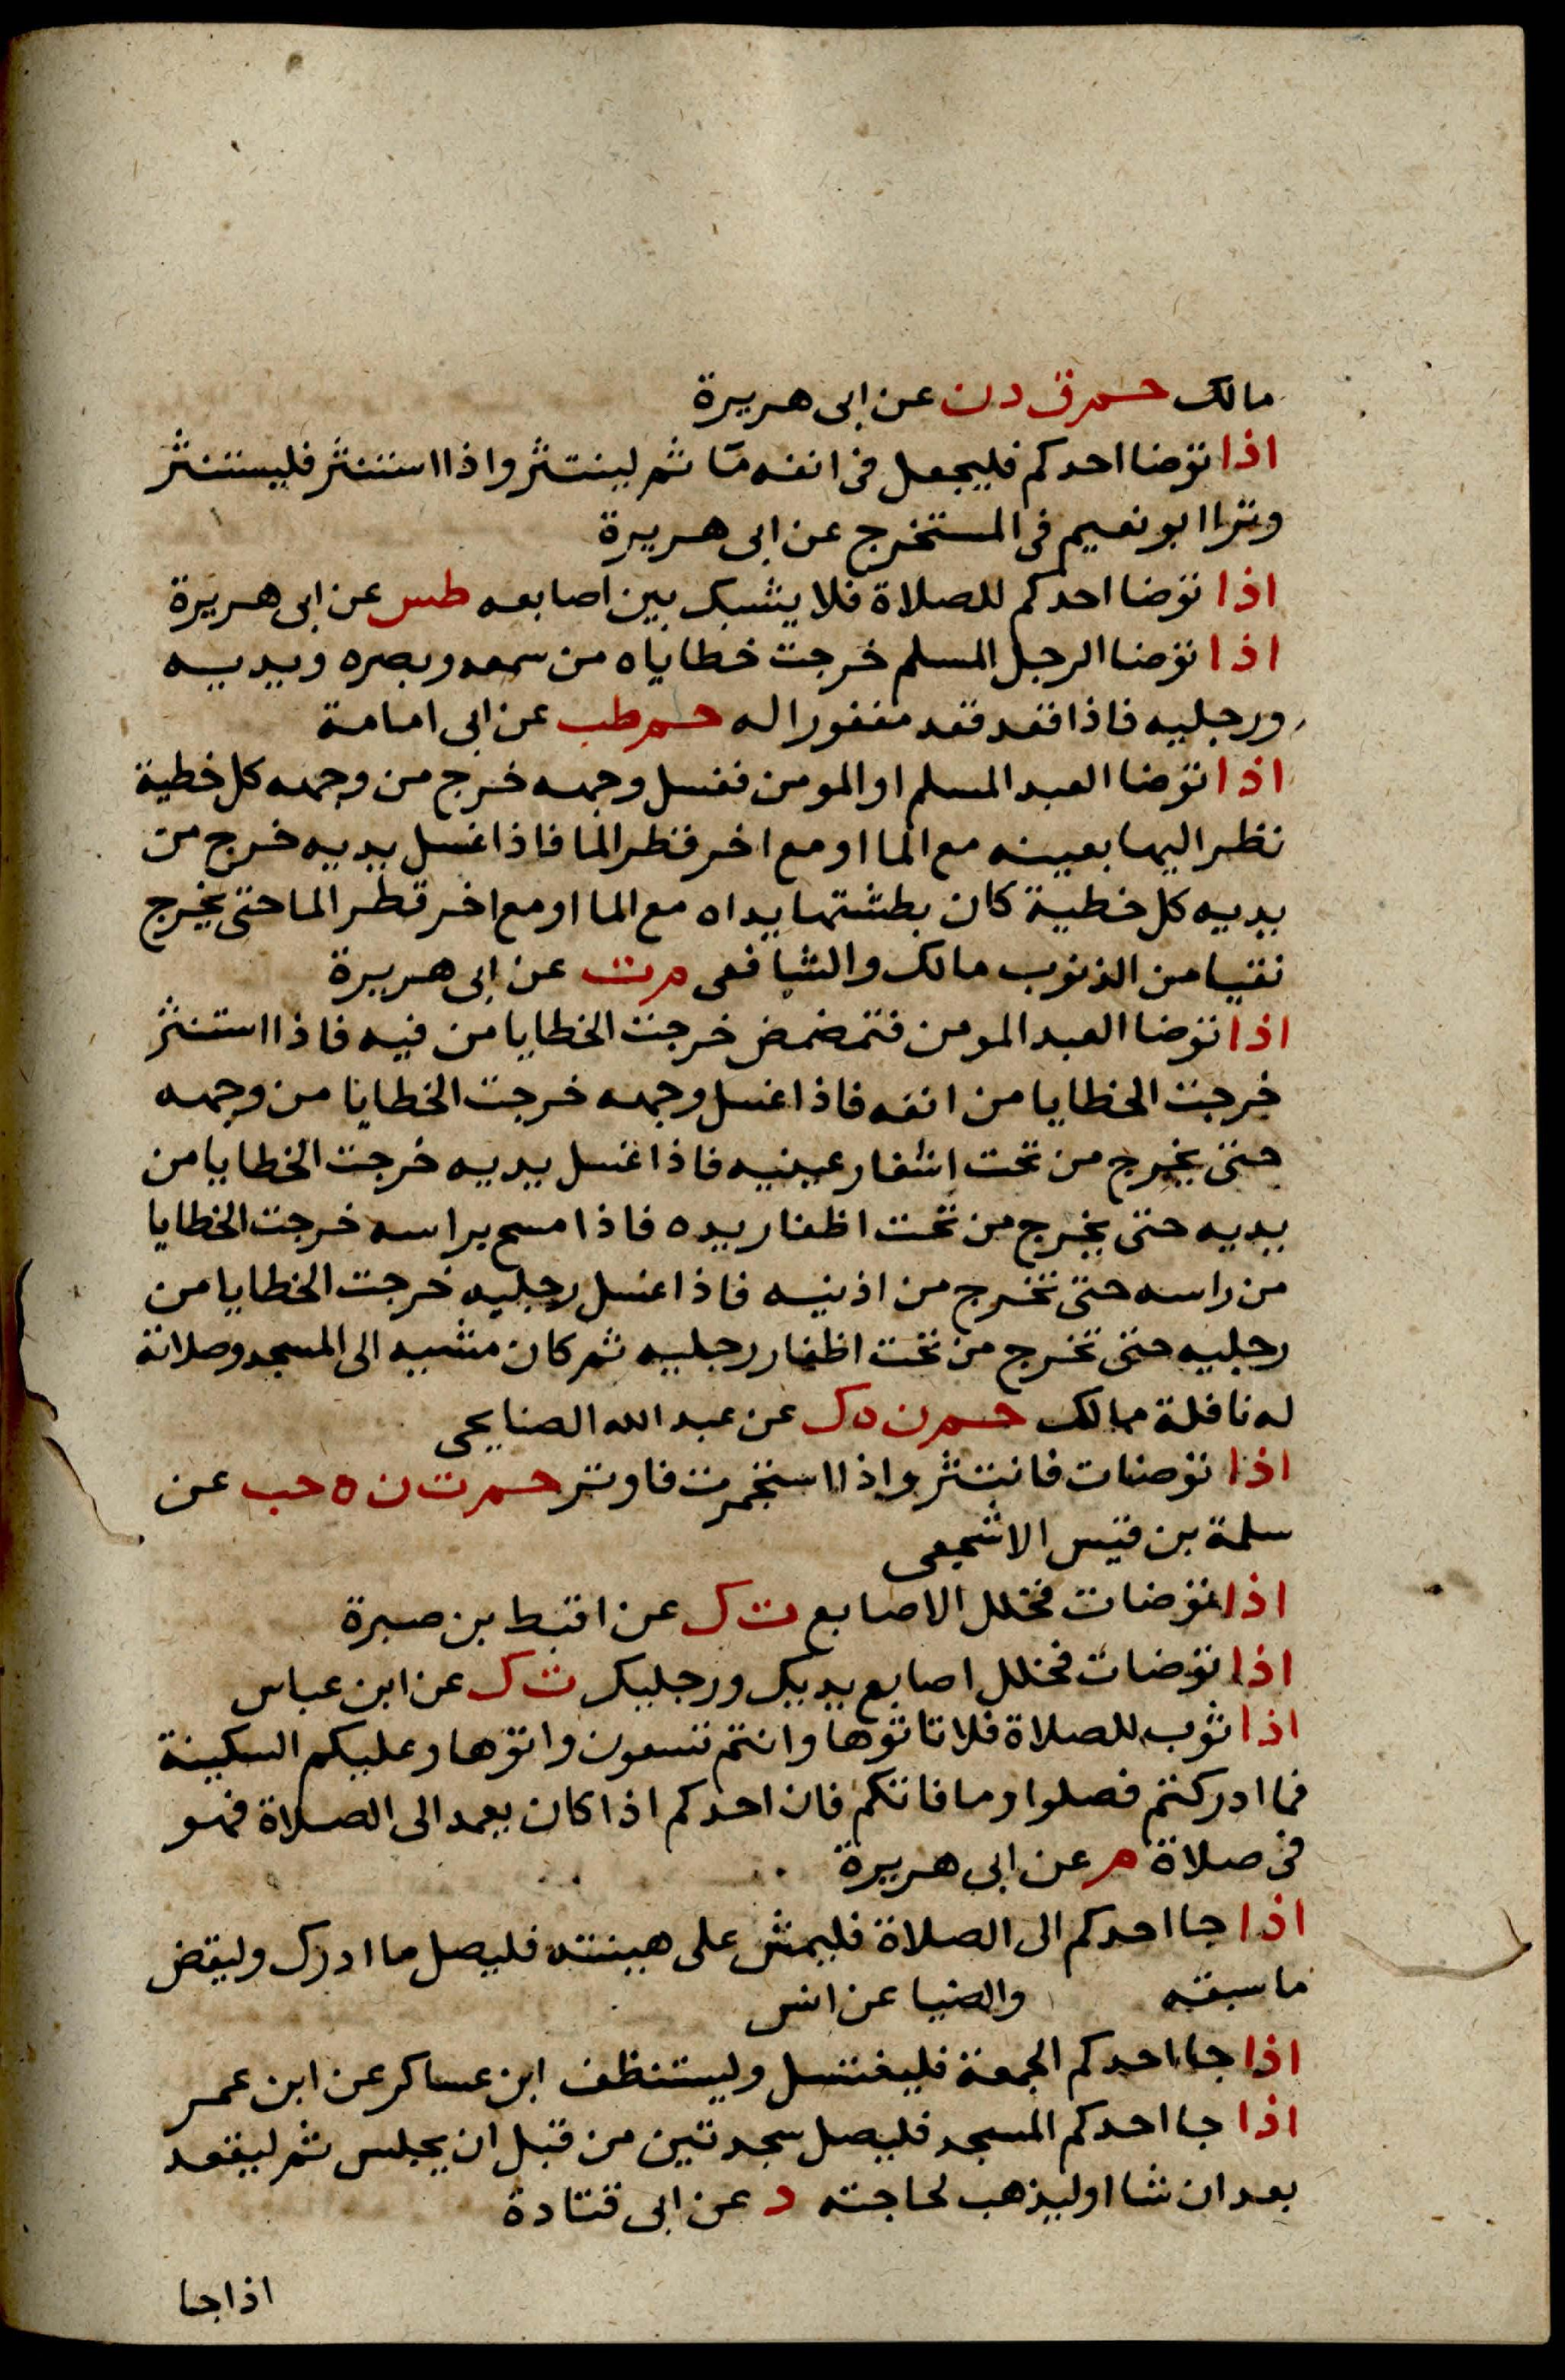 مالك حم ق د ن عن ابى هريرة
اذا توضا احدكم فليجعل فى انفه مآ ثم لينتثر واذا استنثر فليستنثر
وترا ابو نعيم فى المستخرج عن ابى هريرة
اذا توضا احدكم للصلاة فلا يشبك بين اصابعه طس عن ابى هريرة
اذا توضا الرجل المسلم خرجت خطاياه من سمعه وبصره ويديه
ورجليه فاذا قعد قعد مغفورا له حم طب عن ابى امامة
اذا توضا العبد المسلم او المومن فغسل وجهه خرج من وجهه كل خطية
نظر اليها بعينه مع الما او مع اخر قطر الما فاذا غسل يديه خرج من
يديه كل خطية كان بطشتها يداه مع الما او مع اخر قطر الما حتى يخرج
نقيا من الذنوب مالك والشافعى م ت عن ابى هريرة
اذا توضا العبد المومن فتمضمض خرجت الخطايا من فيه فاذا استنثر
خرجت الخطايا من انفه فاذا غسل وجهه خرجت الخطايا من وجهه
حتى يخرج من تحت اشفار عينيه فاذا غسل يديه خرجت الخطايا من
يديه حتى يخرج من تحت اظفار يده فاذا مسح براسه خرجت الخطايا
من راسه حتى تخرج من اذنيه فاذا غسل رجليه خرجت الخطايا من
رجليه حتى تخرج من تحت اظفار رجليه ثم كان مشيه الى المسجد وصلاته
له نافلة مالك حم ن ه ك عن عبد الله الصنابحى
اذا توضات فانتثر واذا استجمرت فاوتر حم ت ن ه حب عن
سلمة بن قيس الاشجعى
اذا توضات فخلل الاصابع ت ك عن لقيط بن صبرة
اذا توضات فخلل اصابع يديك ورجليك ت ك عن ابن عباس
اذا ثوب للصلاة فلا تاتوها وانتم تسعون واتوها وعليكم السكينة
فما ادركتم فصلوا وما فاتكم فان احدكم اذا كان يعمد الى الصلاة فهو
فى صلاة م عن ابى هريرة
اذا جا احدكم الى الصلاة فليمش على هينته فليصل ما ادرك وليقض
ما سبقه والضيا عن انس
اذا جا احدكم الجمعة فليغتسل وليستنظف ابن عساكر عن ابن عمر
اذا جا احدكم المسجد فليصل سجدتين من قبل ان يجلس ثم ليقعد
بعد ان شا او ليذهب لحاجته د عن ابى قتادة
اذا جا